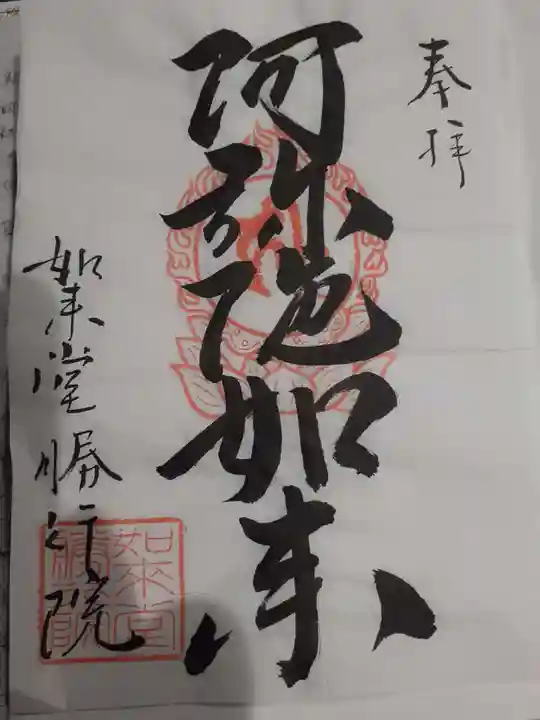 奉拝
阿弥陀如来
如来堂勝行院
如来堂